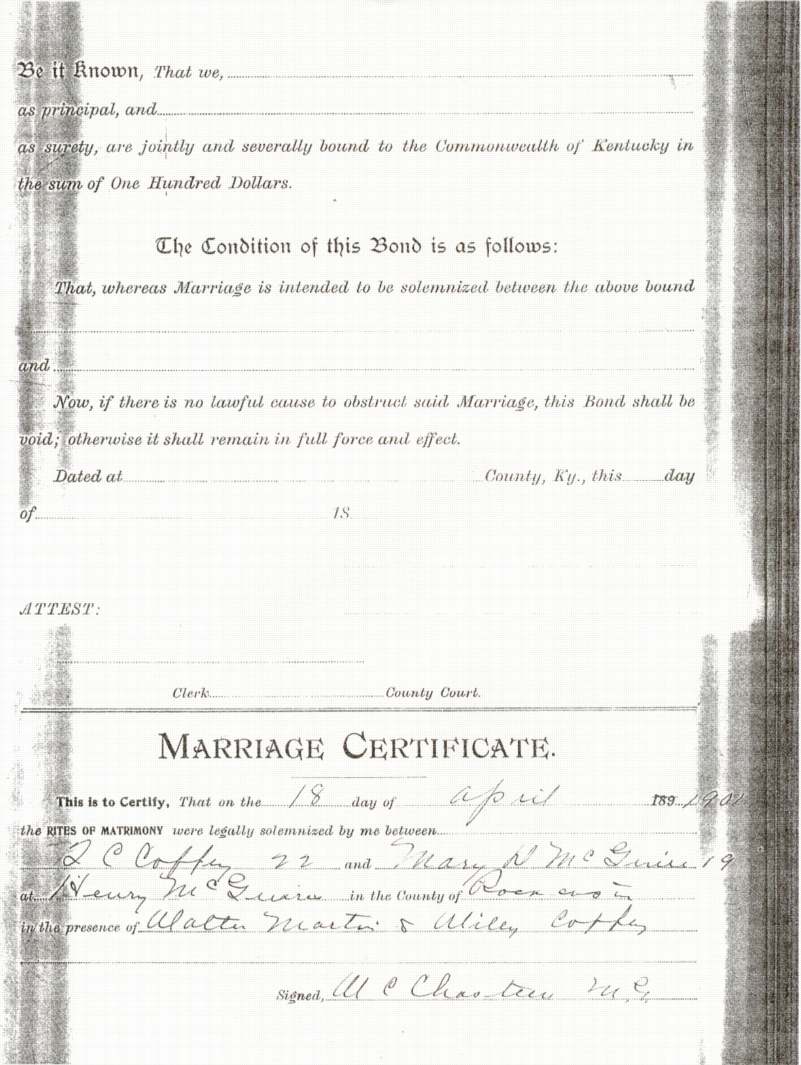 Be it Known, That we,
as principal, and
as surety, are jointly and severally bound to the Commonwealth of Kentucky in
the sum of One Hundred Dollars.
The Condition of this Bond is as follows:
That, whereas Marriage is intended to be solemnized between the above bound
and
Now, if there is no lawful cause to obstruct said Marriage, this Bond shall be
void; otherwise it shall remain in full force and effect.
Dated at County, Ky., this day
of 18
ATTEST:
Clerk County Court.
MARRIAGE CERTIFICATE.
This is to Certify, That on the 18 day of april 189
the RITES OF MATRIMONY were legally solemnized by me between
C Coffey 22 and Mary McGuire 19
at Henry McGuire in the County of
in the presence of Walter Martin & Wiley Coffey
Signed, W C Chasteen